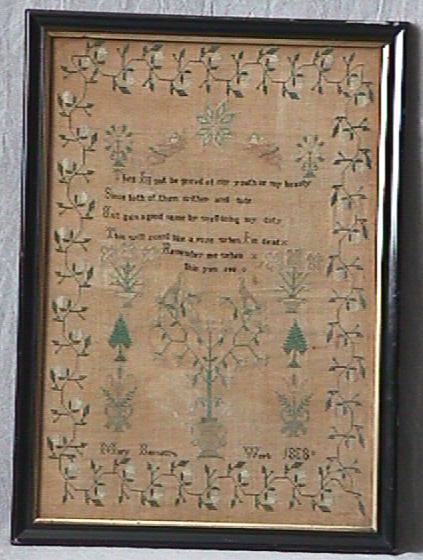 Then Ill not be proud of my youth or my beauty
Since both of them wither and fade
But gain a good name by well doing my duty
This will scent like a rose when I'm dead
Remember me when
this you see
Mary Work 1838